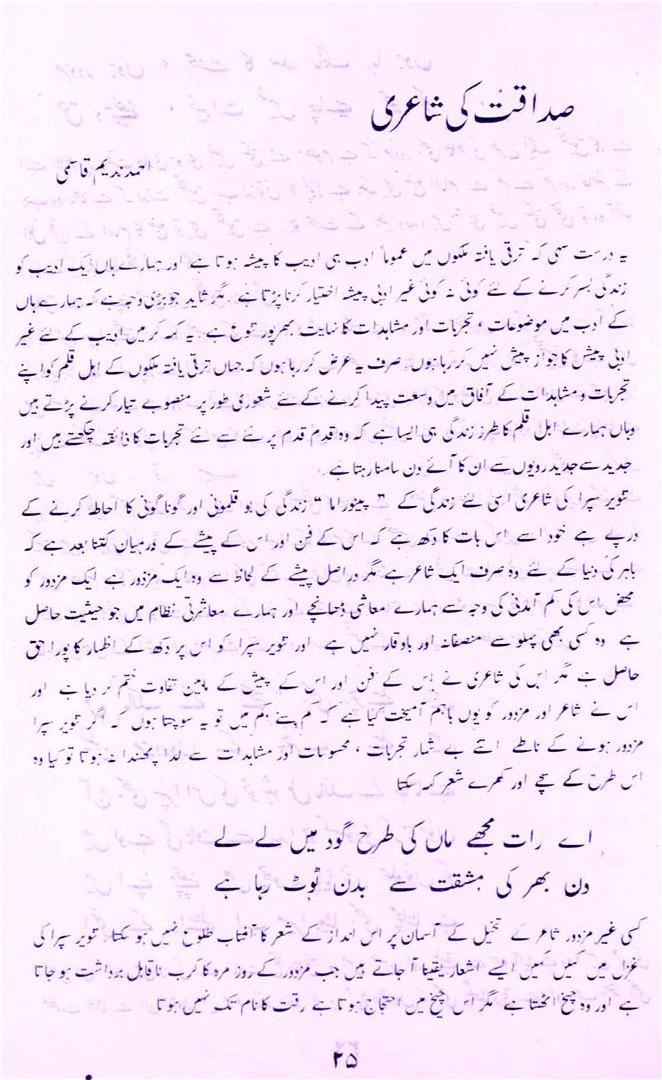 صداقت کی شاعری
احمد ندیم قاسمی
یہ درست سہی کہ ترقی یافتہ ملکوں میں عموماً ادب ہی ادیب کا پیشہ ہوتا ہے اور ہمارے ہاں ایک ادیب کو
زندگی بسر کرنے کے لئے کوئی نہ کوئی غیر ادبی پیشہ اختیار کرنا پڑتا ہے۔ مگر شاید جو بڑی وجہ ہے کہ ہمارے ہاں
کے ادب میں موضوعات، تجربات اور مشاہدات کا نہایت بھرپور تنوع ہے۔ یہ کہہ کر میں ادیب کے لئے غیر
ادبی پیشں کا جواز پیش نہیں کر رہا ہوں۔ صرف یہ عرض کر رہا ہوں کہ جہاں ترقی یافتہ ملکوں کے اہل قلم کو اپنے
تجربات و مشاہدات کے آفاق میں وسعت پیدا کرنے کے لئے شعوری طور پر منصوبے تیار کرنے پڑتے ہیں
وہاں ہمارے اہل قلم کا طرز زندگی ہی ایسا ہے کہ وہ قدم قدم پر نئے سے نئے تجربات کا ذائقہ چکھتے ہیں اور
جدید سے جدید رویوں سے ان کا آئے دن سامنا رہتا ہے۔
تنویر سپرا کی شاعری اسی لئے زندگی کے " پینوراما " زندگی کی بو قلمونی اور گونا گونی کا احاطہ کرنے کے
درپے ہے خود اسے اس بات کا دکھ ہے کہ اس کے فن اور اس کے پیشے کے درمیان کتنا بعد ہے کہ
باہر کی دنیا کے لئے وہ صرف ایک شاعر ہے مگر دراصل پیشے کے لحاظ سے وہ ایک مزدور ہے ایک مزدور کو
محض اس کی کم آمدنی کی وجہ سے ہمارے معاشی ڈھانچے اور ہمارے معاشرتی نظام میں جو حیثیت حاصل
ہے وہ کسی بھی پہلو سے منصفانہ اور باوقار نہیں ہے اور تنویر سپرا کو اس پر دکھ کے اظہار کا پورا حق
حاصل ہے مگر اس کی شاعری نے اس کے فن اور اس کے پیش کے مابین تفاوت ختم کر دیا ہے اور
اس نے شاعر اور مزدور کو یوں باہم آمیخت کیا ہے کہ کم سے کم میں تو یہ سوچتا ہوں کہ اگر تنویر سپرا
مزدور ہونے کے ناطے اتنے بے شمار تجربات، محسوسات اور مشاہدات سے لدا پھندا نہ ہوتا تو کیا وہ
اس طرح کے سچے اور کھرے شعر کہہ سکتا
اے رات مجھے ماں کی طرح گود میں لے لے
دن بھر کی مشقت سے بدن ٹوٹ رہا ہے
کسی غیر مزدور شاعر کے تخیل کے آسمان پر اس انداز کے شعر کا آفتاب طلوع نہیں ہو سکتا۔ تنویر سپرا کی
غزل میں کہیں کہیں ایسے اشعار یقیناً آ جاتے ہیں جب مزدور کے روز مرہ کا کرب ناقابل برداشت ہو جاتا
ہے اور وہ چیخ اٹھتا ہے مگر اس چیخ میں احتجاج ہوتا ہے رقت کا نام تک نہیں ہوتا
۲۵